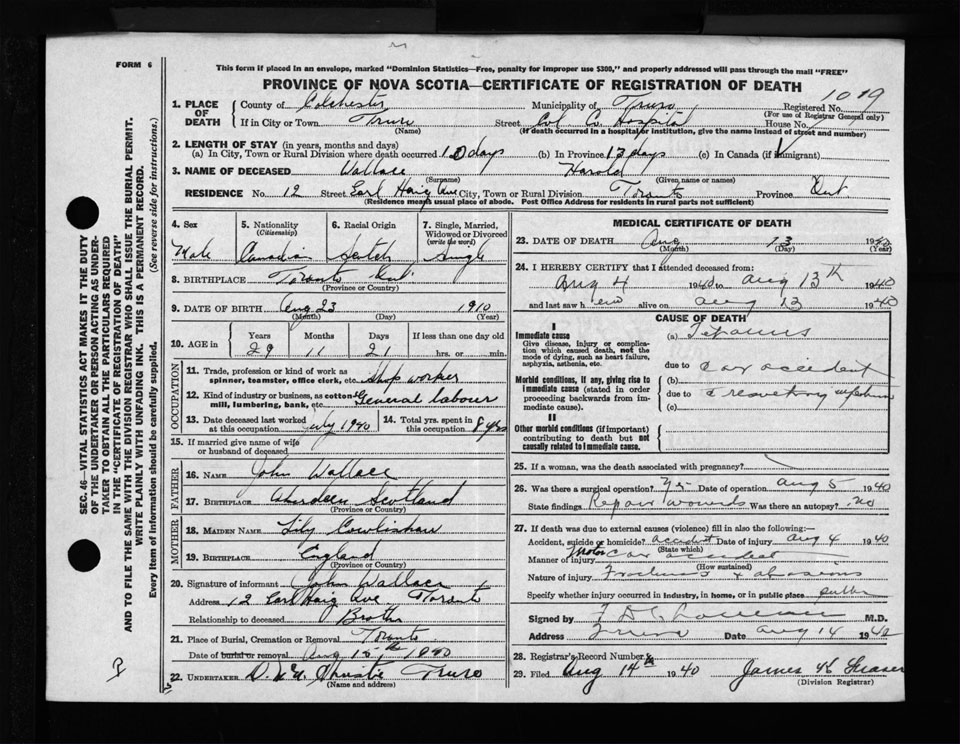 FORM 6
This form if placed in an envelope, marked "Dominion Statistics—Free, penalty for improper use $300," and properly addressed will pass through the mail "FREE"
PROVINCE OF NOVA SCOTIA—CERTIFICATE OF REGISTRATION OF DEATH
1019
1. PLACE OF DEATH
County of Colchester Municipality of Truro Registered No.
(For use of Registrar General only)
If in City or Town Truro Street Col. Co. Hospital House No.
(Name) (If death occurred in a hospital or institution, give the name instead of street and number)
2. LENGTH OF STAY (in years, months and days)
(a) In City, Town or Rural Division where death occurred 10 days (b) In Province 13 days (c) In Canada (if immigrant)
3. NAME OF DECEASED Wallace Harold
(Surname) (Given name or names)
RESIDENCE No. 12 Street Earl Haig Ave City, Town or Rural Division Toronto Province Ont
(Residence means usual place of abode. Post Office Address for residents in rural parts not sufficient)
4. Sex
5. Nationality (Citizenship)
6. Racial Origin
7. Single, Married, Widowed or Divorced (write the word)
Male Canadian Single
8. BIRTHPLACE Toronto Ont.
(Province or Country)
9. DATE OF BIRTH Aug 23 1910
(Month) (Day)
10. AGE in Years Months Days If less than one day old
29 11 21 hrs. or min.
OCCUPATION
11. Trade, profession or kind of work as spinner, teamster, office clerk, etc. Shop worker
12. Kind of industry or business, as cotton-mill, lumbering, bank, etc. General labour
13. Date deceased last worked at this occupation July 1940
14. Total yrs. spent in this occupation 8 yrs
15. If married give name of wife or husband of deceased
FATHER
16. NAME John Wallace
17. BIRTHPLACE Aberdeen Scotland
(Province or Country)
MOTHER
18. MAIDEN NAME Lily Cowlinshaw
19. BIRTHPLACE England
(Province or Country)
20. Signature of informant John Wallace
Address 12 Earl Haig Ave. Toronto
Relationship to deceased Brother
21. Place of Burial, Cremation or Removal Toronto
Date of burial or removal Aug 15th 1940
22. UNDERTAKER Truro
(Name and address)
MEDICAL CERTIFICATE OF DEATH
23. DATE OF DEATH Aug 13 1940
(Month) (Day)
24. I HEREBY CERTIFY that I attended deceased from
Aug 4 1940 to Aug 13th 1940
and last saw h alive on Aug 13 1940
CAUSE OF DEATH
I
Immediate cause
Give disease, injury or complication which caused death, not the mode of dying, such as heart failure, asphyxia, asthenia, etc.
(a) Tetanus
due to Car accident
Morbid conditions, if any, giving rise to immediate cause (stated in order proceeding backwards from immediate cause).
(b)
due to Respiratory
(c)
II
Other morbid conditions (if important) contributing to death but not causally related to immediate cause.
25. If a woman, was the death associated with pregnancy?
26. Was there a surgical operation? Yes Date of operation Aug 5 1940
State findings Repair wounds Was there an autopsy? no
27. If death was due to external causes (violence) fill in also the following:—
Accident, suicide or homicide? accident Date of injury Aug 4 1940
(State which)
Manner of injury Motor car accident
(How sustained)
Nature of injury Fractures & abrasions
Specify whether injury occurred in industry, in home, or in public place public
Signed by M.D.
Address Truro Date Aug 14 1940
28. Registrar's Record Number
29. Filed Aug 14th 1940 James K Fraser
(Division Registrar)
SEC. 46—VITAL STATISTICS ACT MAKES IT THE DUTY OF THE UNDERTAKER OR PERSON ACTING AS UNDERTAKER TO OBTAIN ALL THE PARTICULARS REQUIRED IN THE "CERTIFICATE OF REGISTRATION OF DEATH"
AND TO FILE THE SAME WITH THE DIVISION REGISTRAR WHO SHALL ISSUE THE BURIAL PERMIT.
WRITE PLAINLY WITH UNFADING INK. THIS IS A PERMANENT RECORD.
Every item of information should be carefully supplied. (See reverse side for instructions.)